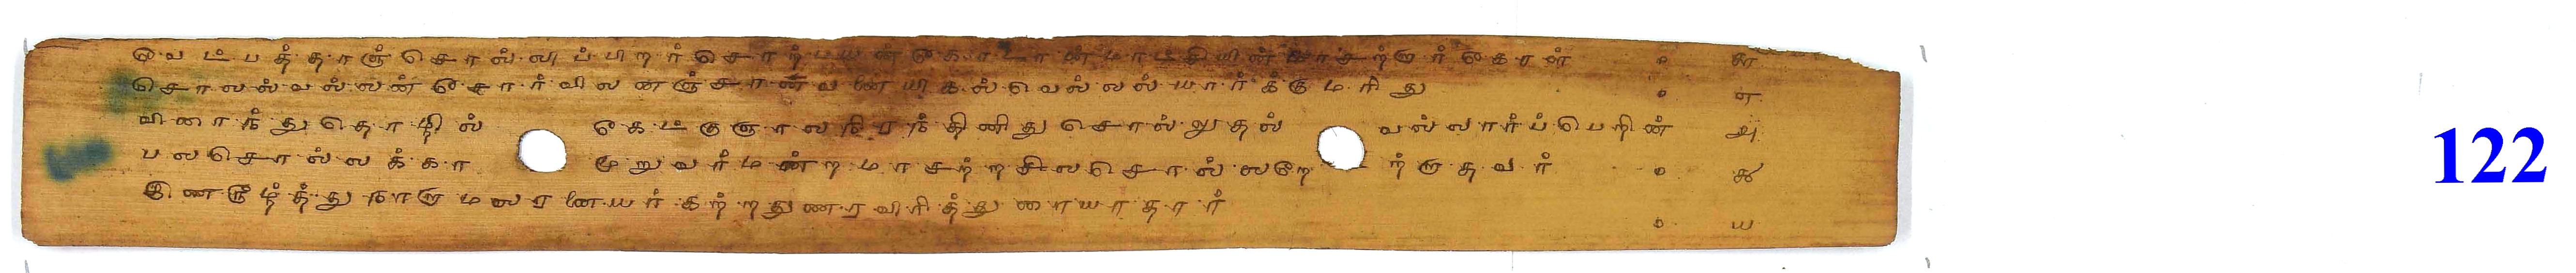 வெட்பத்தாஞ்சொல்லிப்பிறர்சொற்பயன்கொடான்மாட்சியின்மாசற்றார்கொள் ௦ ௬
சொலல்வல்லன்சொர்விலனஞ்சானவனையிகல்வெல்லல்யார்க்குமரிது ௦ ௭
விரைந்துதொழில் கெட்குஞாலநிரந்தினிதுசொல்லுதல் வல்லார்ப்பெறின் ௮
பலசொல்லக்கா முறுவர்மன்றமாசற்றசிலசொல்லறெ ற்றாதவர் ௦ ௯
இணரூழ்த்துநாறாமலரனையர்கற்றதுணரவிரித்துரையாதார் ௦ ௰
122